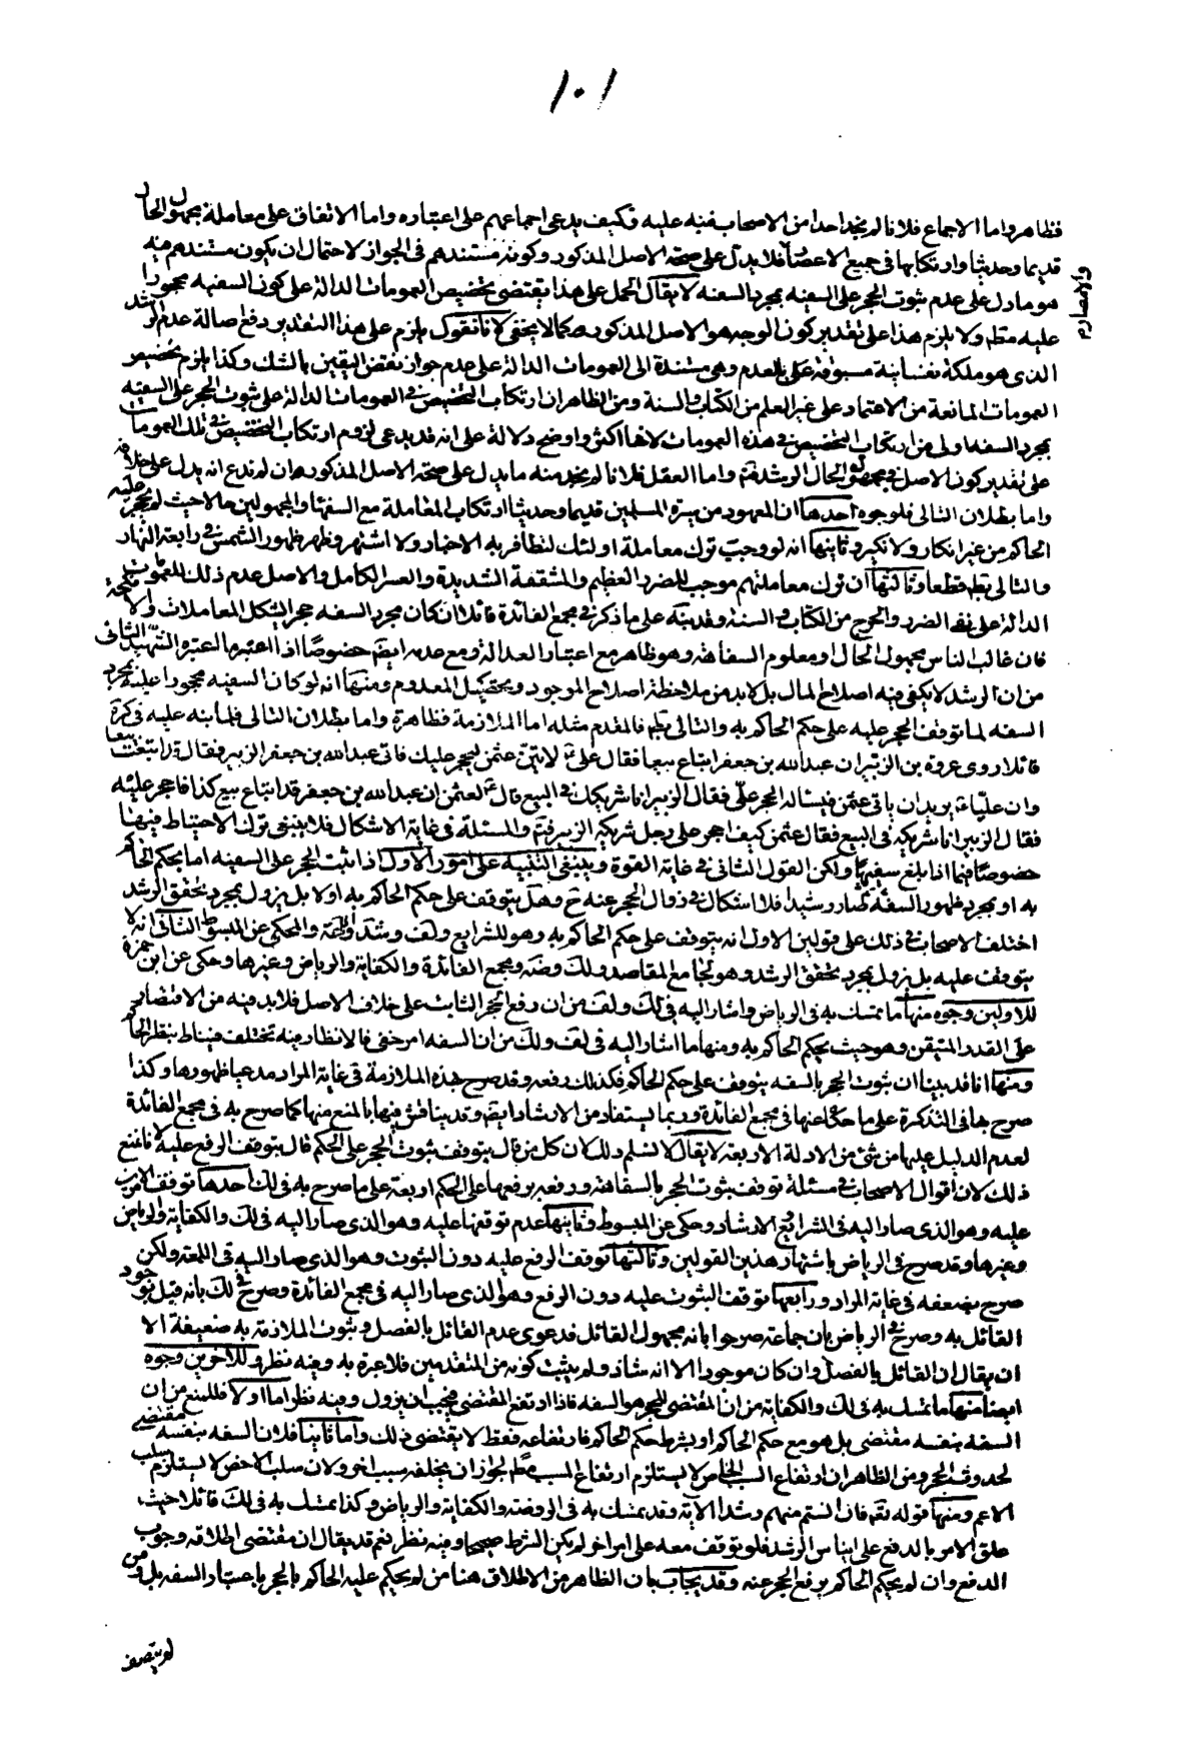 ١٠١
فظاهر واما الاجماع فلانا لم نجد احدا من الاصحاب نبه عليه فكيف يدعى اجماعهم على اعتباره واما الاتفاق على معاملة مجهول الحال
قديما وحديثا وارتكابها فى جميع الاعصار فلا يدل على صحة الاصل المذكور وكونه مستندهم فى الجواز لاحتمال ان يكون مستندهم فيه
والامصار م
هو ما دل على عدم ثبوت الحجر على السفيه بمجرد السفه لا يقال الحمل على هذا يقتضى تخصيص العمومات الدالة على كون السفيه محجورا
عليه مطلقا ولا يلزم هذا على تقدير كون الوجه هو الاصل المذكور كما لا يخفى لانا نقول يلزم على هذا التقدير دفع اصالة عدم الرشد
الذى هو ملكة نفسانية مسبوقة على بالعدم وهى مستندة الى العمومات الدالة على عدم جواز نقض اليقين بالشك وكذا يلزم تخصيص
العمومات المانعة من الاعتماد على غير العلم من الكتاب والسنة ومن الظاهر ان ارتكاب التخصيص فى العمومات الدالة على ثبوت الحجر على السفيه
بمجرد السفه اولى من ارتكاب التخصيص فى هذه العمومات لانها اكثر واوضح دلالة على انه قد يدعى لزوم ارتكاب التخصيص فى تلك العمومات
على تقدير كون الاصل فى مجهول الحال الرشد فتم واما العقل فلانا لم نجد منه ما يدل على صحة الاصل المذكور هذا ان لم ندع انه يدل على خلافه
واما بطلان التالى فلوجوه احدها ان المعهود من سيرة المسلمين قديما وحديثا ارتكاب المعاملة مع السفهاء والمجهولين حالا حيث لم يحجر عليه
الحاكم من غير انكار ولا نكير وثانيها انه لو وجب ترك معاملة اولئك لتظافر به الاخبار ولا اشتهر وظهر ظهور الشمس فى رابعة النهار
والتالى بط قطعا وثالثها ان ترك معاملتهم موجب للضرر العظيم والمشقة الشديدة والعسر الكامل والاصل عدم ذلك للعمومات
الدالة على نفى الضرر والحرج من الكتاب والسنة وقد نبه على ما ذكر فى مجمع الفائدة قائلا ان كان مجرد السفه حجر اشكل المعاملات والانكحة
فان غالب الناس مجهول الحال او معلوم السفاهة وهو ظاهر مع اعتبار العدالة ومع عدمه ايضا خصوصًا اذا اعتبر ما اعتبره الشهيد الثانى
من ان الرشد لا يكفى فيه اصلاح المال بل لا بد من ملاحظة اصلاح الموجود وتحصيل المعدوم ومنها انه لو كان السفيه محجورا عليه بمجرد
السفه لما توقف الحجر عليه على حكم الحاكم به والتالى بط فالمقدم مثله اما الملازمة فظاهرة واما بطلان التالى فلما نبه عليه فى كرة
قائلا روى عروة بن الزبير ان عبدالله بن جعفر ابتاع بيعا فقال على ع لاتين عثمن ليحجر عليك فاتى عبدالله بن جعفر الزبير فقال قد ابتعت بيعا
وان عليّا ع يريد ان ياتى عثمن فيساله الحجر علىّ فقال الزبير انا شريكك فى البيع قال ع لعثمن ان عبدالله بن جعفر قد ابتاع بيع كذا فاحجر عليه
فقال الزبير انا شريكه فى البيع فقال عثمن كيف احجر على رجل شريكه الزبير فتم والمسئلة فى غاية الاشكال فلا ينبغى ترك الاحتياط فيها
خصوصًا فيما اذا بلغ سفيها ولكن القول الثانى فى غاية القوة وينبغى التنبيه على امور الاول اذا ثبت الحجر على السفيه اما بحكم الحاكم
به او بمجرد ظهور السفه فصار رشيدا فلا اشكال فى زوال الحجر عنه ح وهل يتوقف على حكم الحاكم به او لا بل يزول بمجرد تحقق الرشد
اختلف الاصحاب فى ذلك على قولين الاول انه يتوقف على حكم الحاكم به وهو للشرايع ولف وشد واللمعة والمحكى عن المبسوط الثانى انه لا
يتوقف عليه بل يزول بمجرد تحقق الرشد وهو لجامع المقاصد ولك وضه ومجمع الفائدة والكفاية والرياض وغيرها وحكى عن ابن حمزة
للاولين وجوه منها ما تمسك به فى الرياض واشار اليه فى لك ولف من ان رفع الحجر الثابت على خلاف الاصل فلا بد فيه من الاقتصار
على القدر المتيقن وهو حيث يحكم الحاكم به ومنها ما اشار اليه فى لف ولك من ان السفه امر خفى فالانظار فيه تختلف فيناط بنظر الحاكم
ومنها انا قد بينا ان ثبوت الحجر بالسفه يتوقف على حكم الحاكم فكذلك رفعه وقد صرح بهذه الملازمة فى غاية المراد مدعيا ظهورها وكذا
صرح بها فى التذكرة على ما حكاه عنها فى مجمع الفائدة وربما يستفاد من الارشاد ايضا وقد يناقش فيها بالمنع منها كما صرح به فى مجمع الفائدة
لعدم الدليل عليها من شئ من الادلة الاربعة لا يقال لا نسلم ذلك لان كل من قال بتوقف ثبوت الحجر على الحكم قال بتوقف الرفع عليه لانا نمنع
ذلك لان اقوال الاصحاب فى مسئلة توقف ثبوت الحجر بالسفاهة ورفعه برفعها على الحكم اربعة على ما صرح به فى لك احدها توقف الامرين
عليه وهو الذى صار اليه فى الشرايع والارشاد وحكى عن المبسوط وثانيها عدم توقفها عليه وهو الذى صار اليه فى لك والكفاية والرياض
وغيرها وقد صرح فى الرياض باشتهار هذين القولين وثالثها توقف الرفع عليه دون الثبوت وهو الذى صار اليه فى اللمعة ولكن
صرح بضعفه فى غاية المراد ورابعها توقف الثبوت عليه دون الرفع وهو الذى صار اليه فى مجمع الفائدة وصرح فى لك بانه قيل بوجود
القائل به وصرح فى الرياض بان جماعة صرحوا بانه مجهول القائل فدعوى عدم القائل بالفصل وثبوت الملازمة به ضعيفة الا
ان يقال ان القائل بالفصل وان كان موجودا الا انه شاذ ولم يثبت كونه من المتقدمين فلا عبرة به وفيه نظر وللآخرين وجوه
ايضا منها ما تمسك به فى لك والكفاية من ان المقتضى للحجر هو السفه فاذا ارتفع المقتضى فيجب ان يزول وفيه نظر اما اولا فللمنع من ان
السفه بنفسه مقتضى بل هو مع حكم الحاكم او بشرط حكم الحاكم فارتفاعه فقط لا يقتضى ذلك واما ثانيا فلان السفه بنفسه مقتضى
لحدوث الحجر ومن الظاهر ان ارتفاع السبب الخاص لا يستلزم ارتفاع المسبب مط لجواز ان يخلفه سبب اخر ولان سلب الاخص لا يستلزم سلب
الاعم ومنها قوله تعم فان انستم منهم رشدا الآية وقد تمسك به فى الروضة والكفاية والرياض وكذا تمسك به فى لك قائلا حيث
علق الامر بالدفع على ايناس الرشد فلو توقف معه على امر اخر لم يكن الشرط صحيحا وفيه نظر نعم قد يقال ان مقتضى اطلاقه وجوب
الدفع وان لم يحكم الحاكم برفع الحجر عنه وقد يجاب بان الظاهر من الاطلاق هنا من لم يحكم عليه الحاكم بالحجر باعتبار السفه بل ومن
لم يتصف